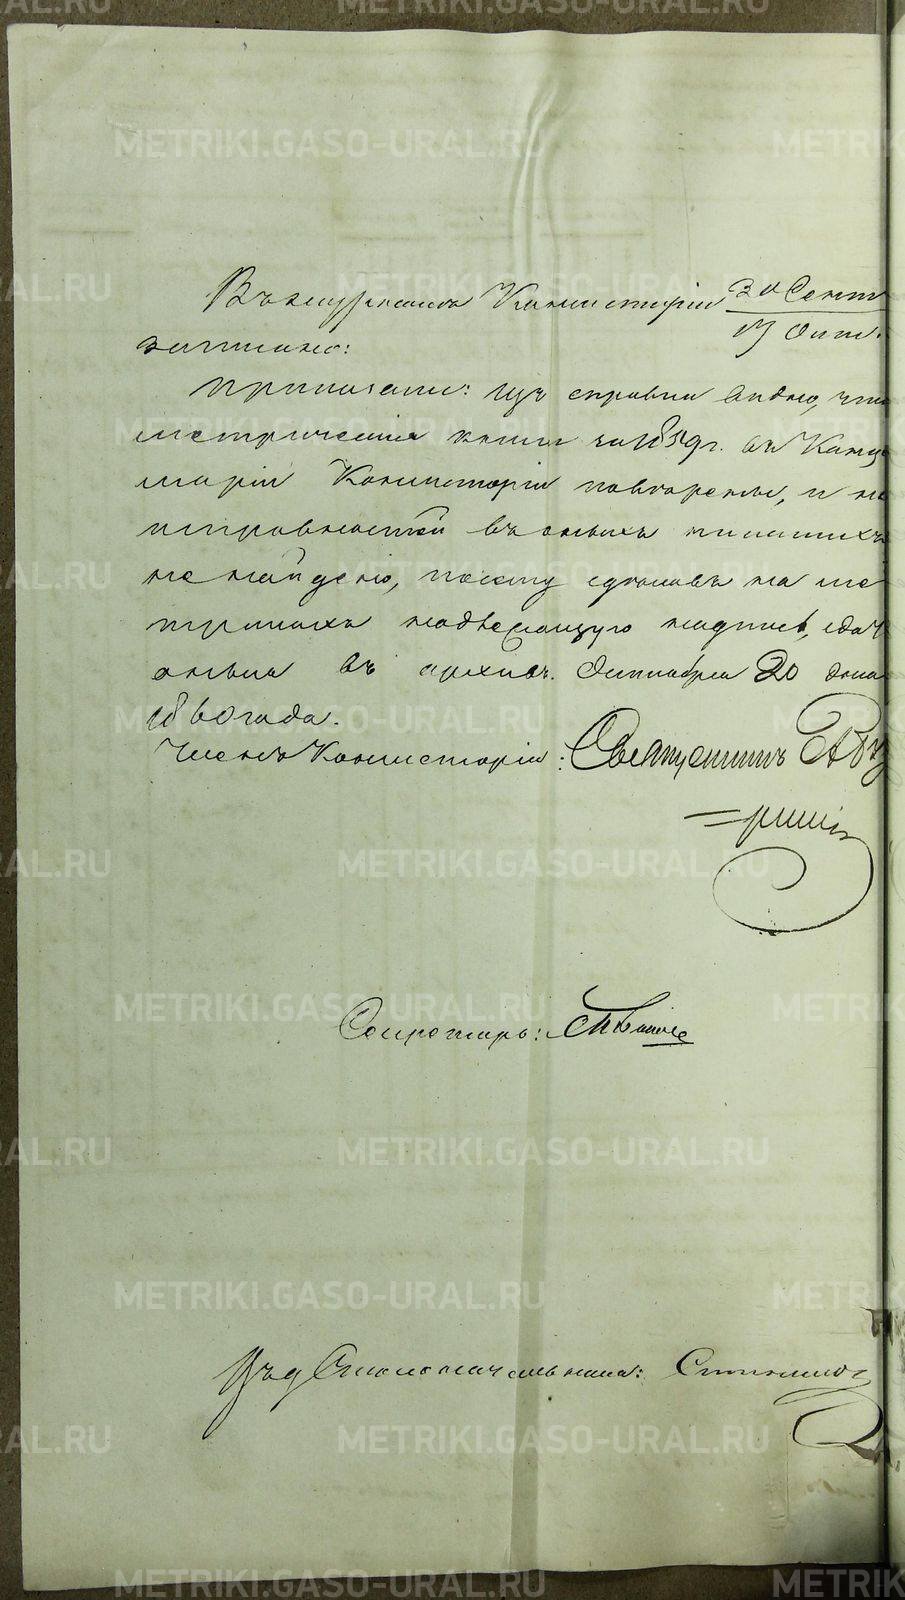 Въ журналѣ Консисторіи 30 Сент
17 Окт.
записано:
Приказали: Изъ справки видно, что
метрическія книги за 1859 г. въ Канце
ляріи Консисторіи повѣрены, и не
исправностей въ оныхъ никакихъ
не найдено, посему сдѣлавъ на ме
трикахъ надлежащую надпись, сдать
оныя въ архивъ. Октября 20 дня
1860 года.
Членъ Консисторіи:
Секретарь:
Столоначальника:
METRIKI.GASO-URAL.RU